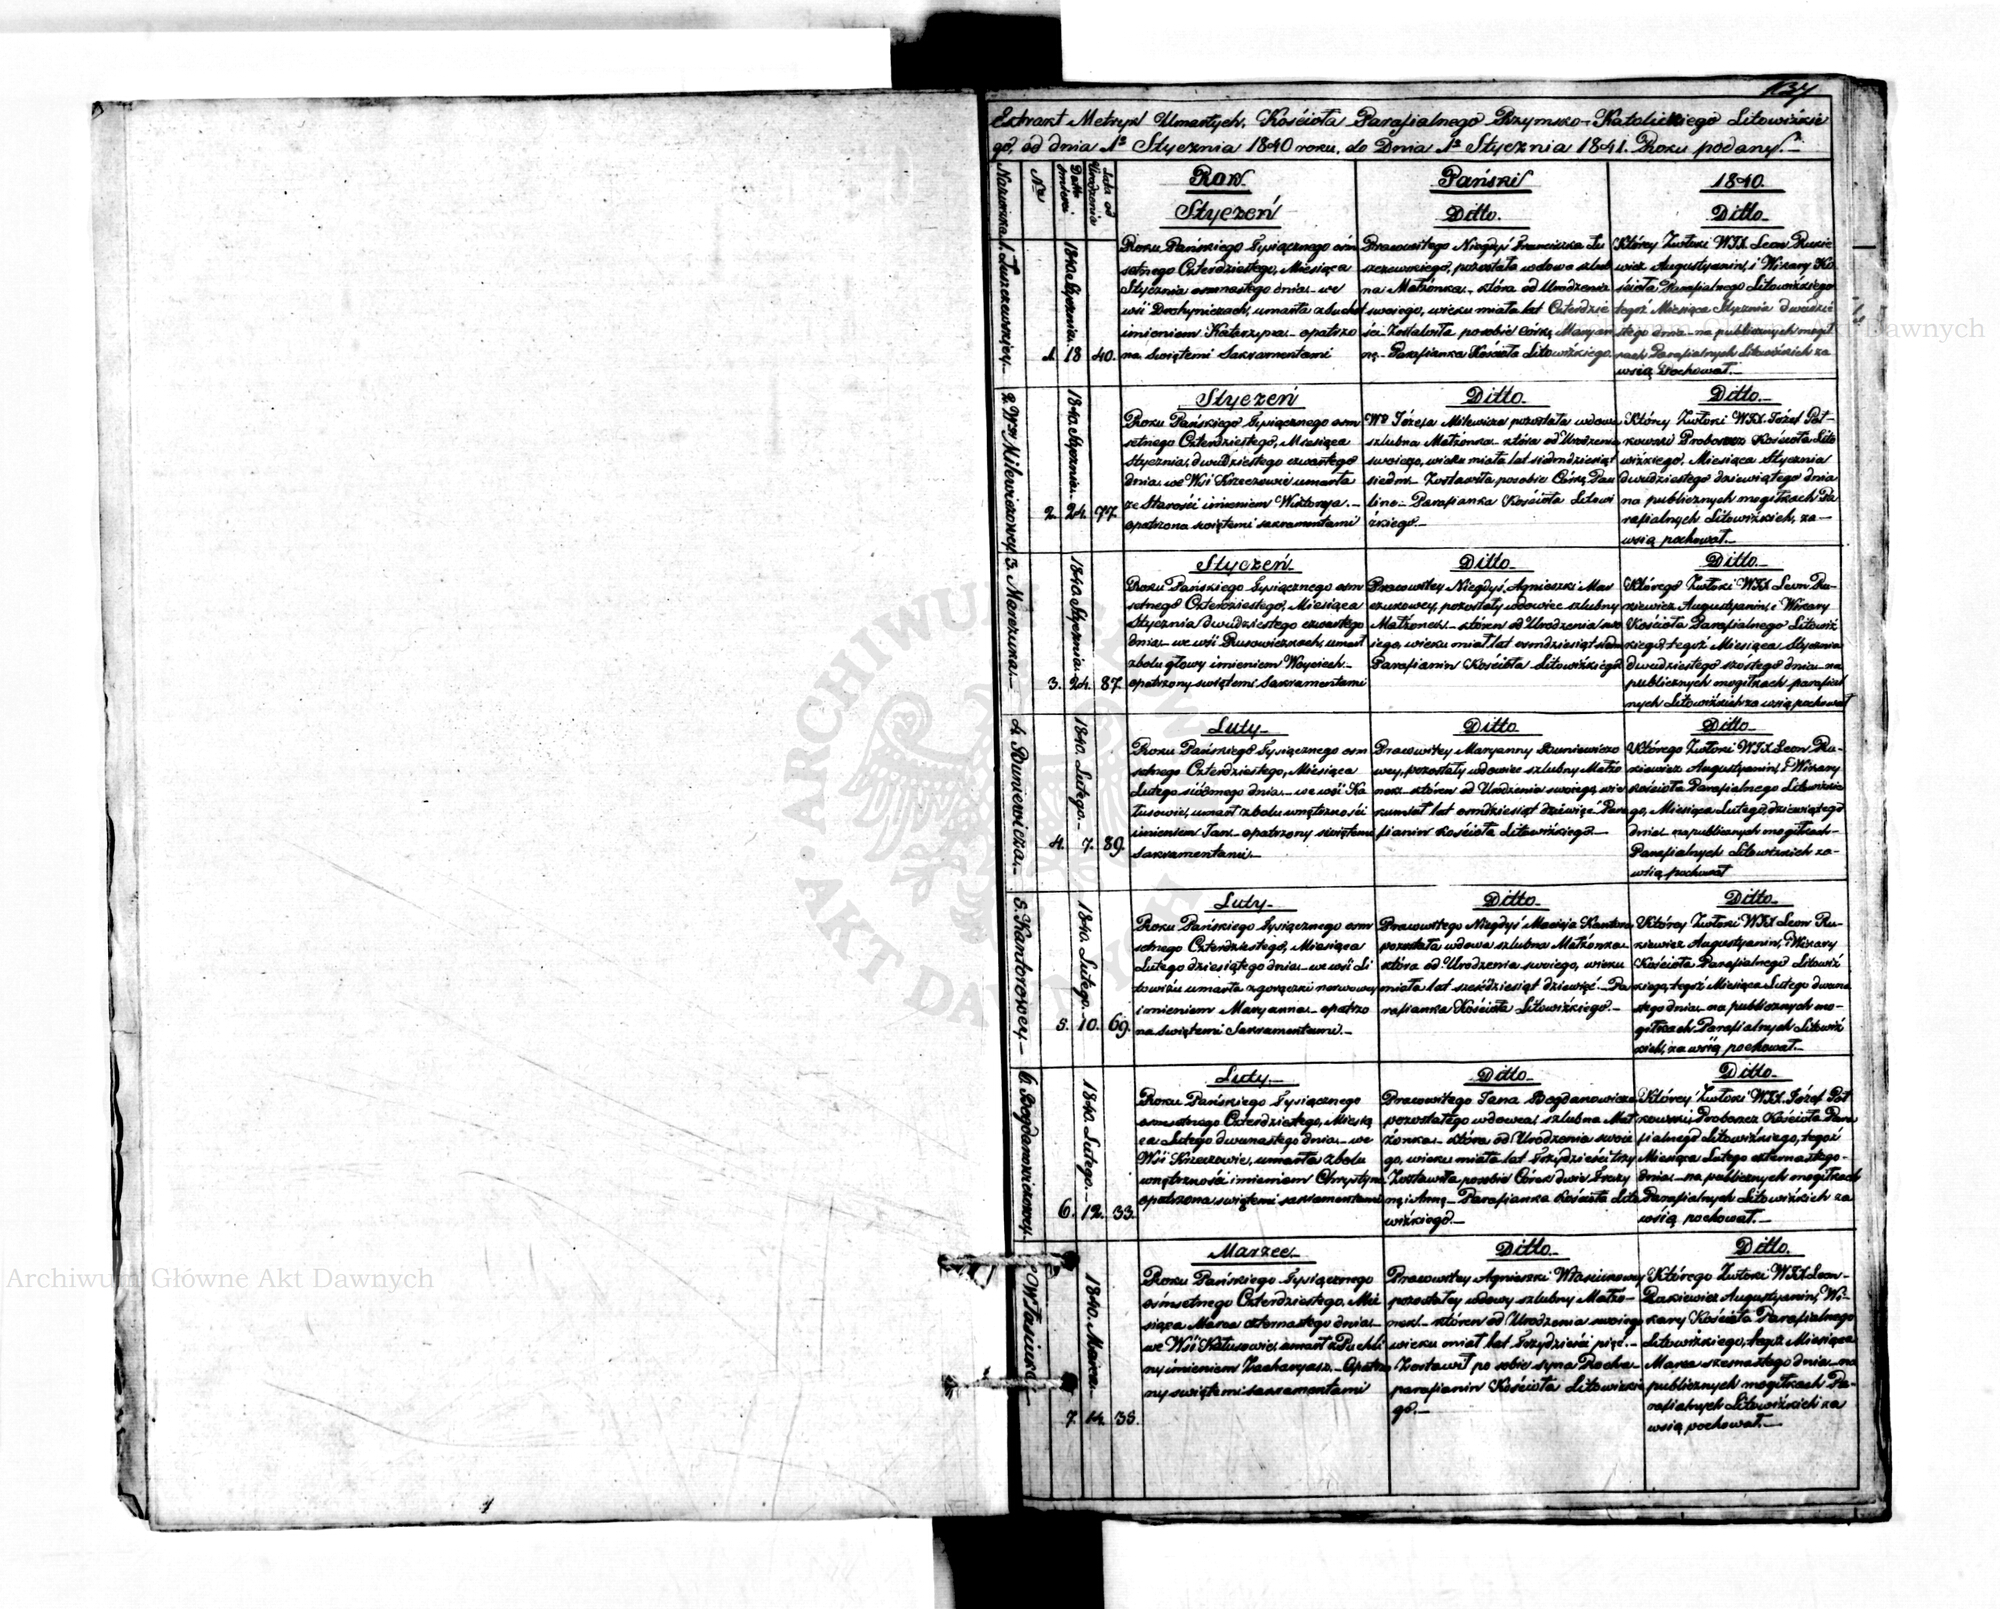 137
Extrakt Metryk Umarłych, Kościoła Parafialnego Rzymsko-Katolickiego Litowizkie
go, od dnia 1º Stycznia 1840 roku, do Dnia 1º Stycznia 1841. Roku podany.
Nazwiska
Nra
Data śmierci
Lata od Urodzenia
Rok
Pański
1840.
Styczeń
Ditto.
Ditto.
1. Łuszczewskiey.
1.
1840 Stycznia. 18
40.
Roku Pańskiego Tysiącznego óśm
setnego Czterdziestego, Miesiąca
Stycznia osmnastego dnia we
wśi Drohyniczach, umarła z suchot
imieniem Katarzyna opatrzo
na świętemi Sakramentami
Pracowitego Niegdyś Franciszka Łu
szczewskiego, pozostała wdowa szlub
na Małżonka która od Urodzenia
swoiego, wieku miała lat Czterdzie
ści. Zostawiła po sobie córkę Maryan
nę. Parafianka Kościoła Litowizkiego
Którey Zwłoki WJX. Leon Rukie
wicz Augustyanin, i Wikary Ko
ścioła Parafialnego Litowizkiego
tegoż Miesiąca Stycznia dwudzie
stego dnia na publicznych mogił
kach Parafialnych Litowizkich za
wsią Pochował.
Styczeń
Ditto.
Ditto.
2. Wey Milewiczowey
2.
1840 Stycznia. 24.
77.
Roku Pańskiego Tysiącznego osm
setnego Czterdziestego, Miesiąca
Stycznia, dwudziestego czwartego
dnia we Wsi Krzeczowie umarła
ze Starości imieniem Wiktorya.
opatrzona świętemi sakramentami
Wº Józefa Milewicza pozostała wdowa
szlubna Małżonka która od Urodzenia
swoiego, wieku miała lat siedmdziesiąt
siedm. Zostawiła po sobie Córkę Pau
linę. Parafianka Kościoła Litowi
zkiego.
Którey Zwłoki WJX. Józef Pot
kowski Proboszcz Kościoła Lito
wizkiego, Miesiąca Stycznia
dwudziestego dziewiątego dnia
na publicznych mogiłkach Pa
rafialnych Litowizkich, za
wsią pochował.
Styczeń.
Ditto.
Ditto.
3. Marczuka.
3.
1840 Stycznia. 24.
87.
Roku Pańskiego Tysiącznego osm
setnego Czterdziestego, Miesiąca
Stycznia dwudziestego czwartego
dnia we wśi Rusowiczkach, umarł
z bolu głowy imieniem Woyciech
opatrzony świętemi Sakramentami
Pracowitey Niegdyś Agnieszki Mar
czukowey, pozostały wdowiec szlubny
Małżonek któren od Urodzenia swo
iego, wieku miał lat osmdziesiąt siedm
Parafianin Kościoła Litowizkiego
Którego Zwłoki WJX. Leon Ru
kiewicz Augustyanin, i Wikary
Kościoła Parafialnego Litowiz
kiego, tegoż Miesiąca Stycznia
dwudziestego szostego dnia na
publicznych mogiłkach parafial
nych Litowizkich za wsią pochował
Luty
Ditto
Ditto
4.
1840. Lutego. 7.
89.
Roku Pańskiego Tysiącznego osm
setnego Czterdziestego, Miesiąca
Lutego siódmego dnia we wśi Ka
łusowie, umarł z bolu wnętrznośći
imieniem Jan opatrzony świętemi
Sakramentami.
Pracowitey Maryanny
wey, pozostały wdowiec szlubny Małżo
nek któren od Urodzenia swoiego, wie
ku miał lat osmdziesiąt dziewięć Para
fianin Kościoła Litowizkiego
Którego Zwłoki WJX. Leon Ru
kiewicz Augustyanin, i Wikary
Kościoła Parafialnego Litowizkie
go, Miesiąca Lutego, dziewiątego
dnia na publicznych mogiłkach
Parafialnych Litowizkich za
wsią pochował
Luty
Ditto.
Ditto.
5. Kantorowey.
5.
1840. Lutego. 10.
69.
Roku Pańskiego Tysiącznego osm
setnego Czterdziestego, Miesiąca
Lutego dziesiątego dnia we wśi Li
towizu umarła z gorączki nerwowey
imieniem Maryanna opatrzo
na świętemi Sakramentami.
Pracowitego Niegdyś Macieja Kantora
pozostała wdowa szlubna Małżonka
która od Urodzenia swoiego, wieku
miała lat sześćdziesiąt dziewięć. Pa
rafianka Kościoła Litowizkiego.
Którey Zwłoki WJX. Leon Ru
kiewicz Augustyanin, i Wikary
Kościoła Parafialnego Litowiz
kiego, tegoż Miesiąca Lutego dwuna
stego dnia na publicznych mo
giłkach Parafialnych Litowiz
kich, za wśią pochował.
Luty.
Ditto.
Ditto.
6. Bogdanowiczowey.
6.
1840. Lutego. 12.
33.
Roku Pańskiego Tysiącznego
osmsetnego Czterdziestego, Miesią
ca Lutego dwunastego dnia we
Wśi Krzeczowie, umarła z bolu
wnętrznośći imieniem Chrystyna
opatrzona świętemi sakramentami
Pracowitego Jana Bogdanowicza
pozostałego wdowca, szlubna Mał
żonka która od Urodzenia swoie
go, wieku miała lat Trzydzieści trzy
Zostawiła po sobie Córek dwie
nę i Annę Parafianka Kościoła Lito
wizkiego.
Którey Zwłoki WJX. Józef Pot
kowski Proboszcz Kościoła Para
fialnego Litowizkiego, tegoż
Miesiąca Lutego czternastego
dnia na publicznych mogiłkach
Parafialnych Litowizkich za
wśią pochował.
Marzec.
Ditto.
Ditto.
7.
1840. Marca. 14.
35.
Roku Pańskiego Tysiącznego
ośmsetnego Czterdziestego, Mie
siąca Marca czternastego dnia
we Wśi Kałusowie, umarł z Puchli
ny imieniem Zacharyasz. Opatrzo
ny świętemi sakramentami
Pracowitey Agnieszki Własiukowey
pozostałey wdowy szlubny Małżo
nek któren od Urodzenia swoiego
wieku miał lat Trzydzieści pięć.
Zostawił po sobie syna Rocha
parafianin Kościoła Litowizkie
go.
Którego Zwłoki WJX. Leon
Rukiewicz Augustyanin, Wi
kary Kościoła Parafialnego
Litowizkiego, tegoż Miesiąca
Marca szesnastego dnia na
publicznych mogiłkach Pa
rafialnych Litowizkich za
wsią pochował.
Archiwum Główne Akt Dawnych
ARCHIWUM GŁÓWNE AKT DAWNYCH